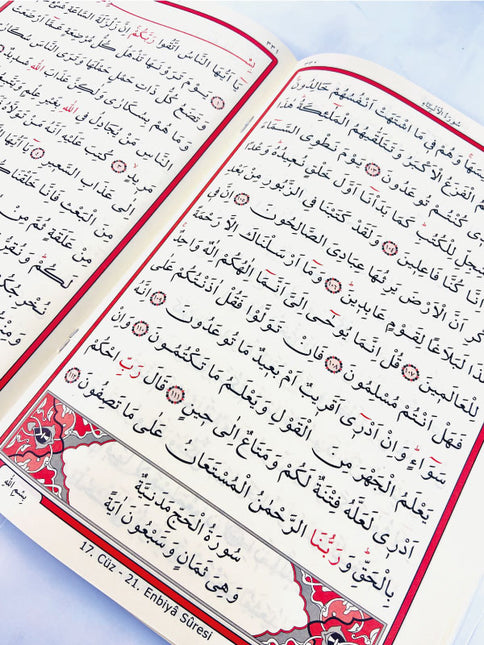 ٣٣٠
سُورَةُ الْاَنْبِيَاءِ
وَهُمْ فى مَا اشْتَهَتْ اَنْفُسُهُمْ خَالِدُونَ
الْفَزَعُ الْاَكْبَرُ وَتَتَلَقّٰيهُمُ الْمَلٰئِكَةُ هٰذَا
كُنْتُمْ تُوعَدُونَ ١٠٣ يَوْمَ نَطْوِى السَّمَاءَ
لِلْكُتُبِ كَمَا بَدَاْنَا اَوَّلَ خَلْقٍ نُعِيدُهُ وَعْدًا
اِنَّا كُنَّا فَاعِلِينَ ١٠٤ وَلَقَدْ كَتَبْنَا فِى الزَّبُورِ مِنْ بَعْدِ
اَنَّ الْاَرْضَ يَرِثُهَا عِبَادِىَ الصَّالِحُونَ ١٠٥ اِنَّ فى
هٰذَا لَبَلَاغًا لِقَوْمٍ عَابِدِينَ ١٠٦ وَمَا اَرْسَلْنَاكَ اِلَّا رَحْمَةً
لِلْعَالَمِينَ ١٠٧ قُلْ اِنَّمَا يُوحٰى اِلَىَّ اَنَّمَا اِلٰهُكُمْ اِلٰهٌ وَاحِدٌ
فَهَلْ اَنْتُمْ مُسْلِمُونَ ١٠٨ فَاِنْ تَوَلَّوْا فَقُلْ اٰذَنْتُكُمْ عَلٰى
سَوَاءٍ وَاِنْ اَدْرى اَقَرِيبٌ اَمْ بَعِيدٌ مَا تُوعَدُونَ ١٠٩ اِنَّهُ
يَعْلَمُ الْجَهْرَ مِنَ الْقَوْلِ وَيَعْلَمُ مَا تَكْتُمُونَ ١١٠ وَاِنْ
اَدْرى لَعَلَّهُ فِتْنَةٌ لَكُمْ وَمَتَاعٌ اِلٰى حِينٍ ١١١ قَالَ رَبِّ احْكُمْ
بِالْحَقِّ وَرَبُّنَا الرَّحْمٰنُ الْمُسْتَعَانُ عَلٰى مَا تَصِفُونَ ١١٢
سُورَةُ الْحَجِّ مَدَنِيَّةٌ
وَهِىَ ثَمَانٍ وَسَبْعُونَ اٰيَةً
17. Cüz - 21. Enbiyâ Sûresi
٣٣١
يَا اَيُّهَا النَّاسُ اتَّقُوا رَبَّكُمْ اِنَّ زَلْزَلَةَ السَّاعَةِ شَىْءٌ
١ يَوْمَ تَرَوْنَهَا تَذْهَلُ كُلُّ مُرْضِعَةٍ عَمَّا اَرْضَعَتْ
وَتَضَعُ كُلُّ ذَاتِ حَمْلٍ حَمْلَهَا وَتَرَى النَّاسَ سُكَارٰى
وَمَا هُمْ بِسُكَارٰى وَلٰكِنَّ عَذَابَ اللّٰهِ شَدِيدٌ
النَّاسِ مَنْ يُجَادِلُ فِى اللّٰهِ بِغَيْرِ عِلْمٍ وَيَتَّبِعُ
مَرِيدٍ ٣ كُتِبَ عَلَيْهِ اَنَّهُ مَنْ تَوَلَّاهُ
اِلٰى عَذَابِ السَّعِيرِ ٤ يَا اَيُّهَا
مِنَ الْبَعْثِ فَاِنَّا خَلَقْنَاكُمْ
مِنْ عَلَقَةٍ ثُمَّ مِنْ
لَكُمْ وَنُقِرُّ
نُخْرِجُكُمْ
بِسْمِ اللّٰهِ